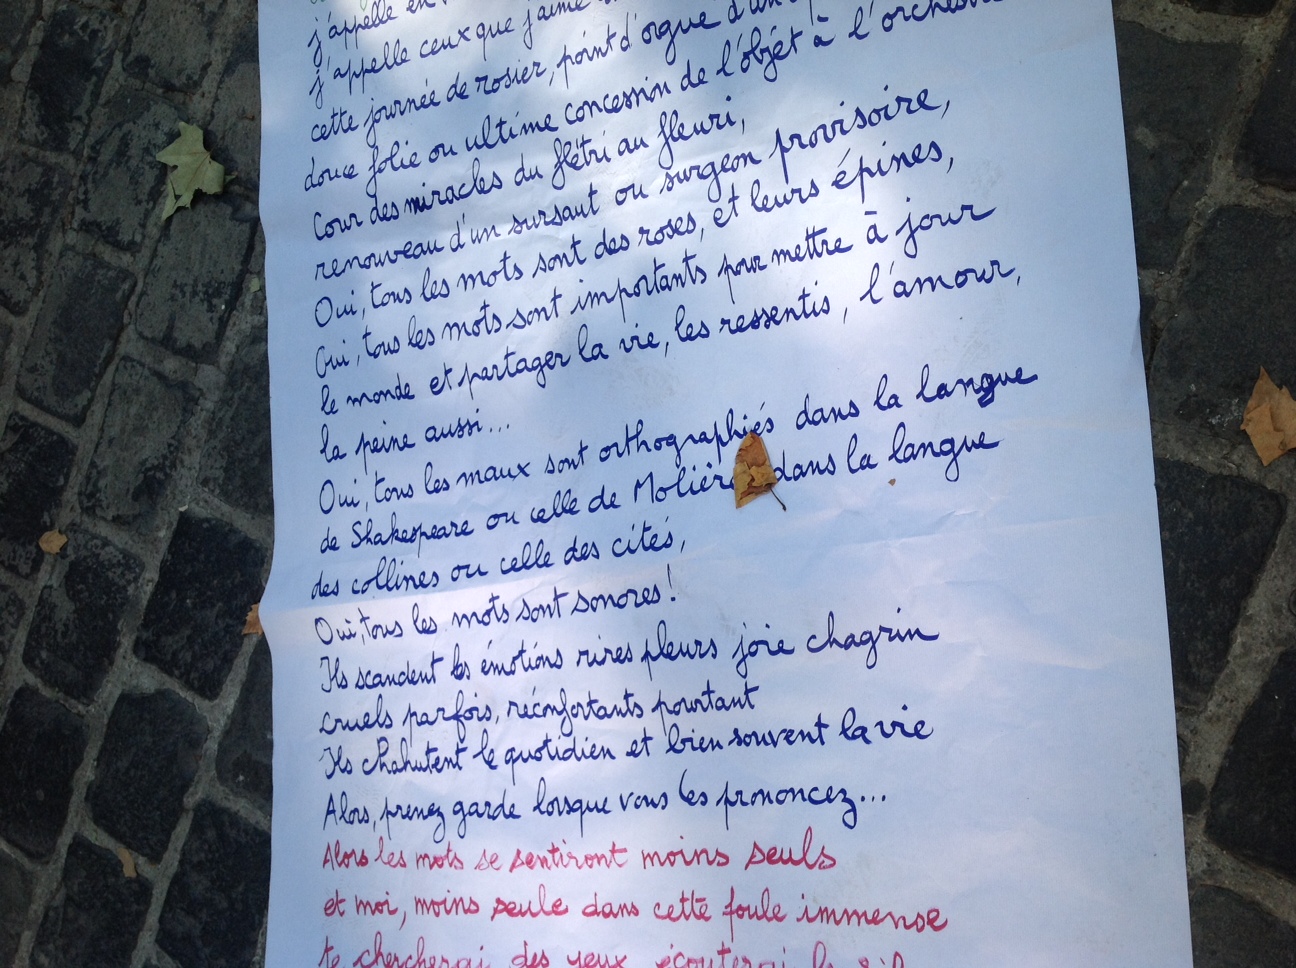 j'appelle en
j'appelle ceux que j'aime
cette journée de rosier, point d'orgue d'un
douce folie ou ultime concession de l'objet à l'orchestre
Cour des miracles du flétri au fleuri,
renouveau d'un sursaut ou surgeon provisoire,
Oui, tous les mots sont des roses, et leurs épines,
Oui, tous les mots sont importants pour mettre à jour
le monde et partager la vie, les ressentis, l'amour,
la peine aussi...
Oui, tous les maux sont orthographiés dans la langue
de Shakespeare ou celle de Molière dans la langue
des collines ou celle des cités,
Oui, tous les mots sont sonores !
Ils scandent les émotions rires pleurs joie chagrin
cruels parfois, réconfortants pourtant
Ils chahutent le quotidien et bien souvent la vie
Alors, prenez garde lorsque vous les prononcez...
Alors les mots se sentiront moins seuls
et moi, moins seule dans cette foule immense
te chercherai des yeux écouterai le